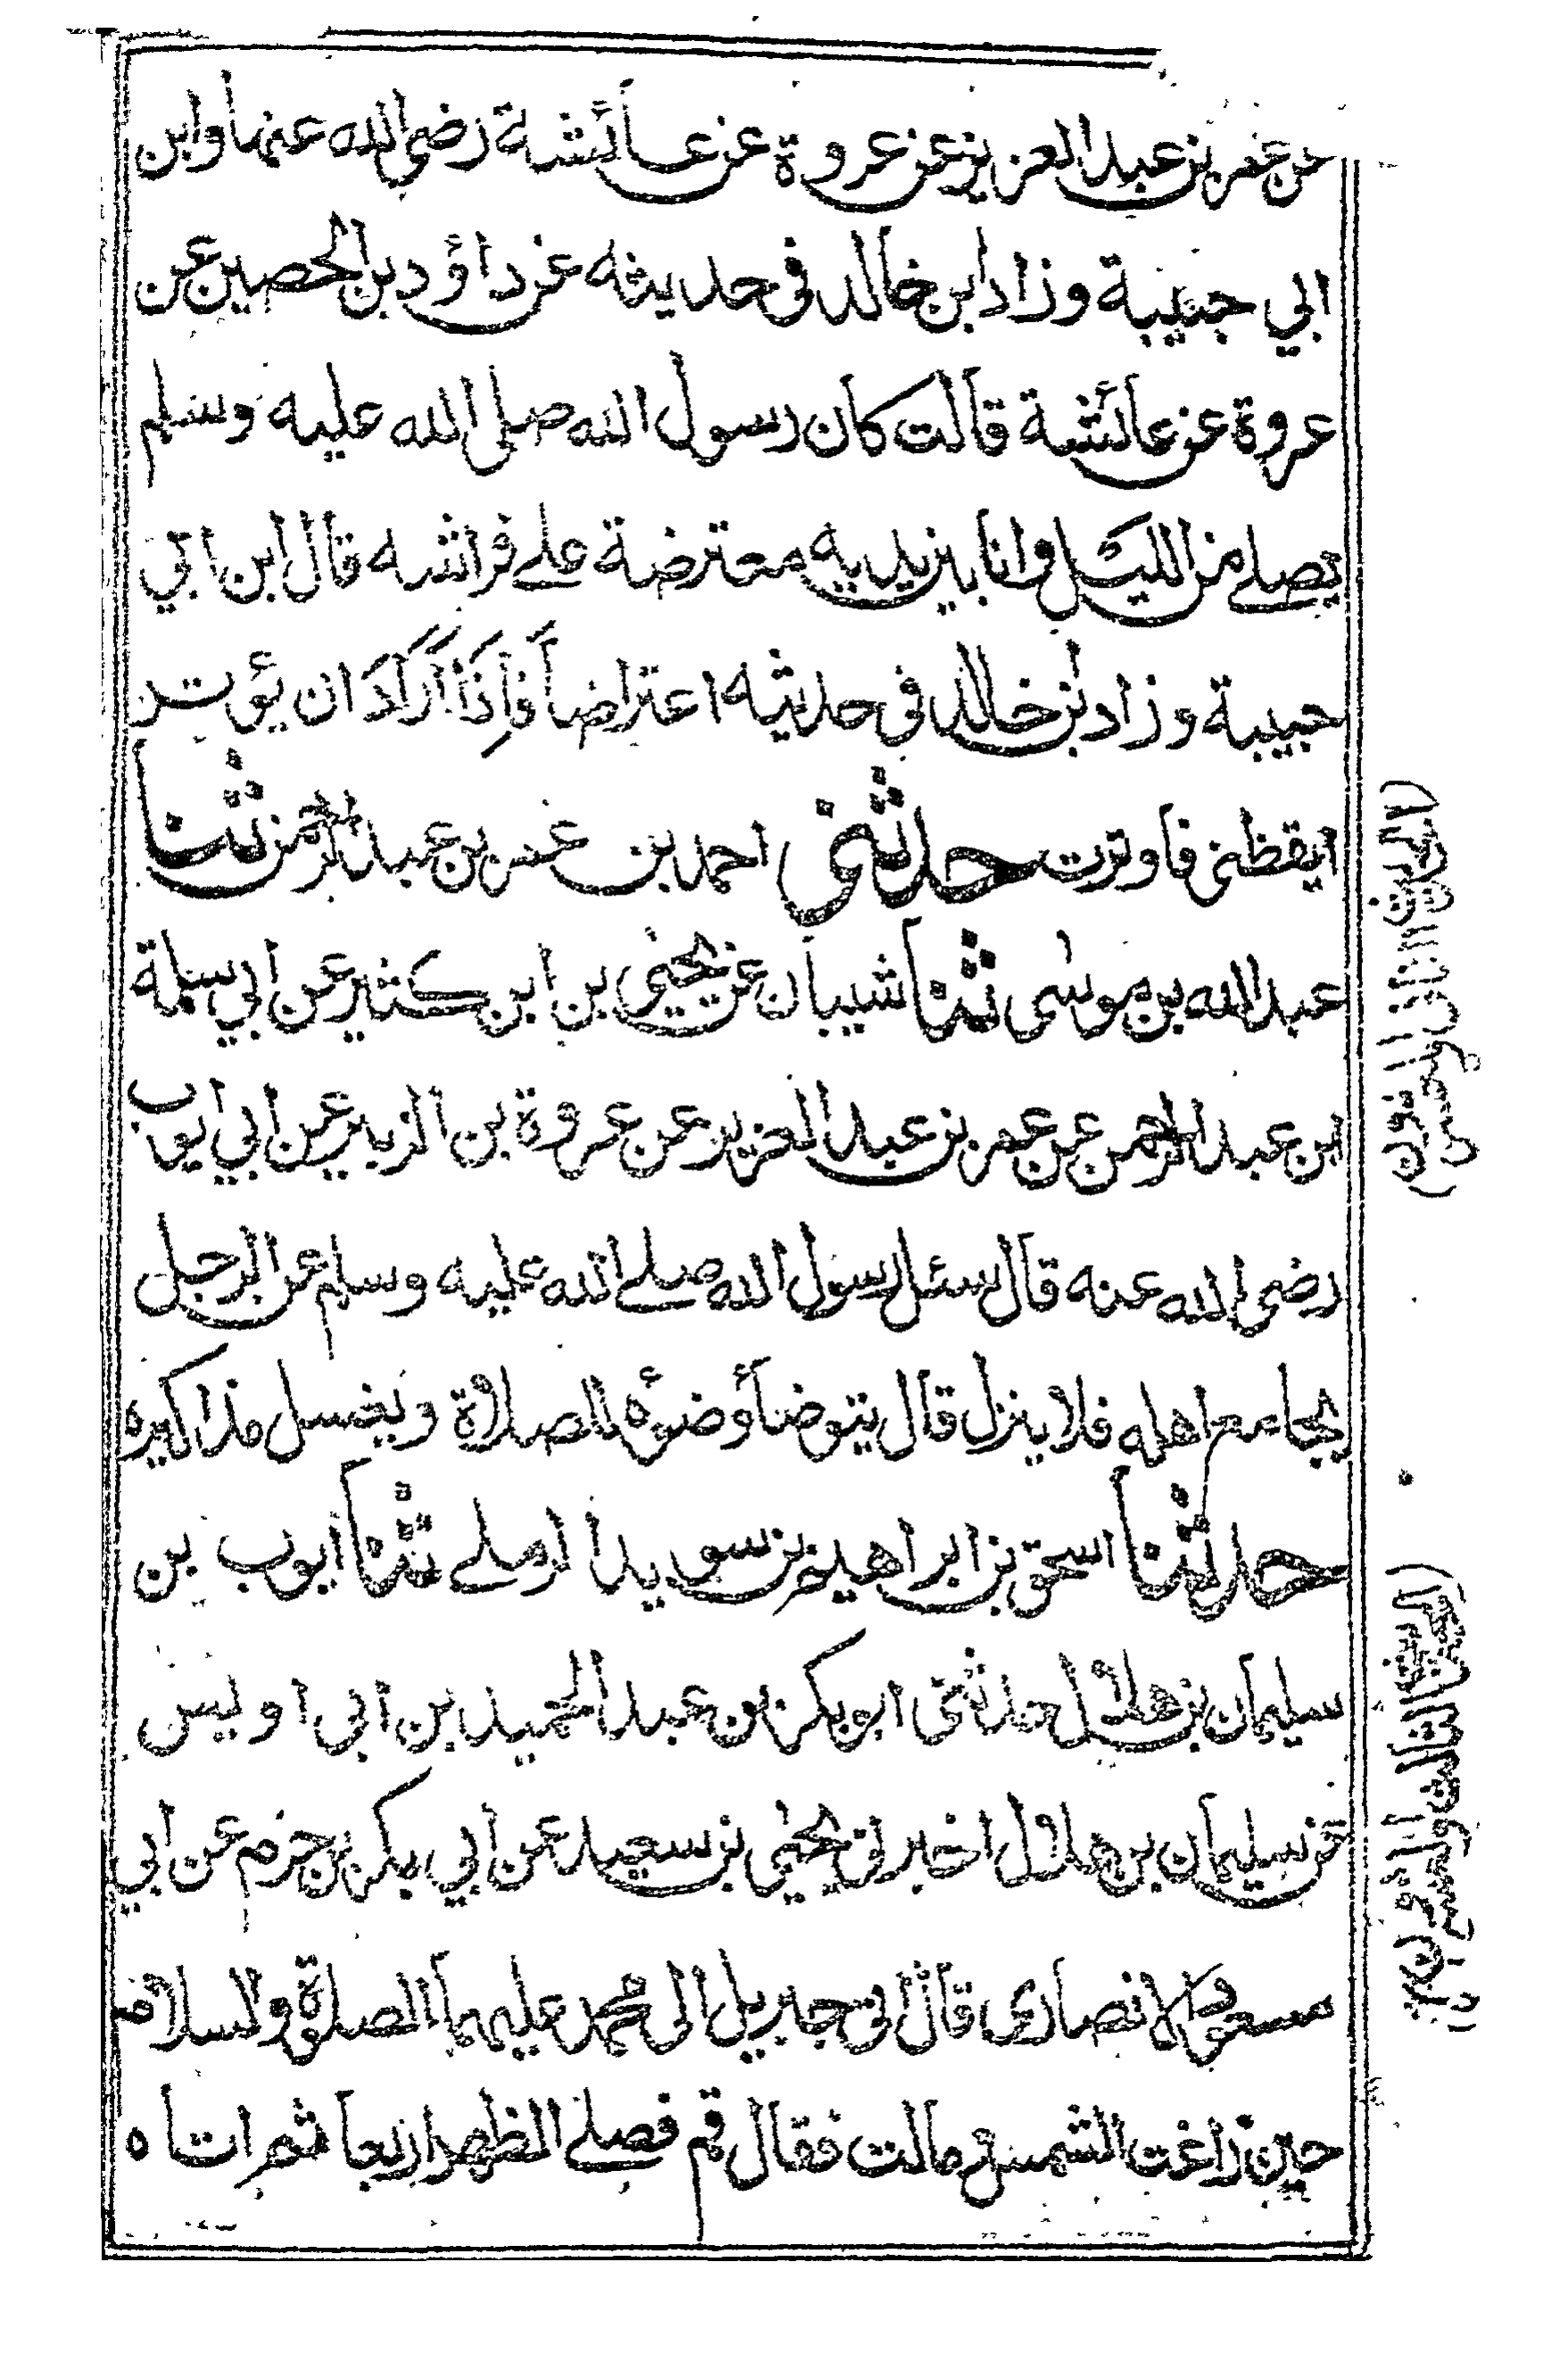 عن عمر بن عبد العزيز عن عروة عن عائشة رضي الله عنها وابن
ابي حبيبة وزاد ابن خالد في حديثه عن داؤد بن الحصين عن
عروة عن عائشة قالت كان رسول الله صلى الله عليه وسلم
يصلے من الليل وانا بين يديه معترضة علے فراشه قال ابن ابي
حبيبة وزاد بن خالد في حديثه اعتراضاً فَاِذَا اَرَادَ ان يؤتر
ايقظني فاوترت حدثني احمد بن عمر بن عبد الرحمن ثنا
عبد الله بن موسٰى ثنا شيبان عن يحيٰى بن ابن كثير عن ابي سلمة
ابن عبد الرحمن عن عمر بن عبد العزيز عن عروة بن الزبير عن ابي ايوب
رضي الله عنه قال سئل رسول الله صلے الله عليه وسلم عن الرجل
يجامع اهله فلا ينزل قال يتوضأ وضوئه للصلاة ويغسل مذاكيره
حدثنا اسحق بن ابراهيم بن سويد الرملے ثنا ايوب بن
سليمان بن هلال حدثني ابو بكر بن عبد الحميد بن ابي اويس
عن سليمان بن هلال اخبرني يحيٰى بن سعيد عن ابي بكر بن حزم عن ابي
مسعود الانصاري قال اتى جبريل الى محمد عليهما الصلوة والسلام
حين زاغت الشمس ومالت فقال قم فصلے الظهر اربعا ثم اتاه
(الحديث الثاني والخمسون)
(الحديث الثالث والخمسون)